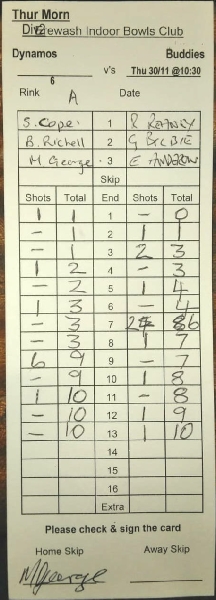 Thur Morn
Div 2 Erewash Indoor Bowls Club
Dynamos Buddies
v's Thu 30/11 @10:30
6
Rink A Date
S. Cope 1
B. Richell 2 G
M George 3 E
Skip
Shots Total End Shots Total
1 1 1 – 0
– 1 2 1 1
– 1 3 2 3
1 2 4 – 3
– 2 5 1 4
1 3 6 – 4
– 3 7 2 6
– 3 8 1 7
6 9 9 – 7
– 9 10 1 8
1 10 11 – 8
– 10 12 1 9
– 10 13 1 10
14
15
16
Extra
Please check & sign the card
Home Skip Away Skip
M George